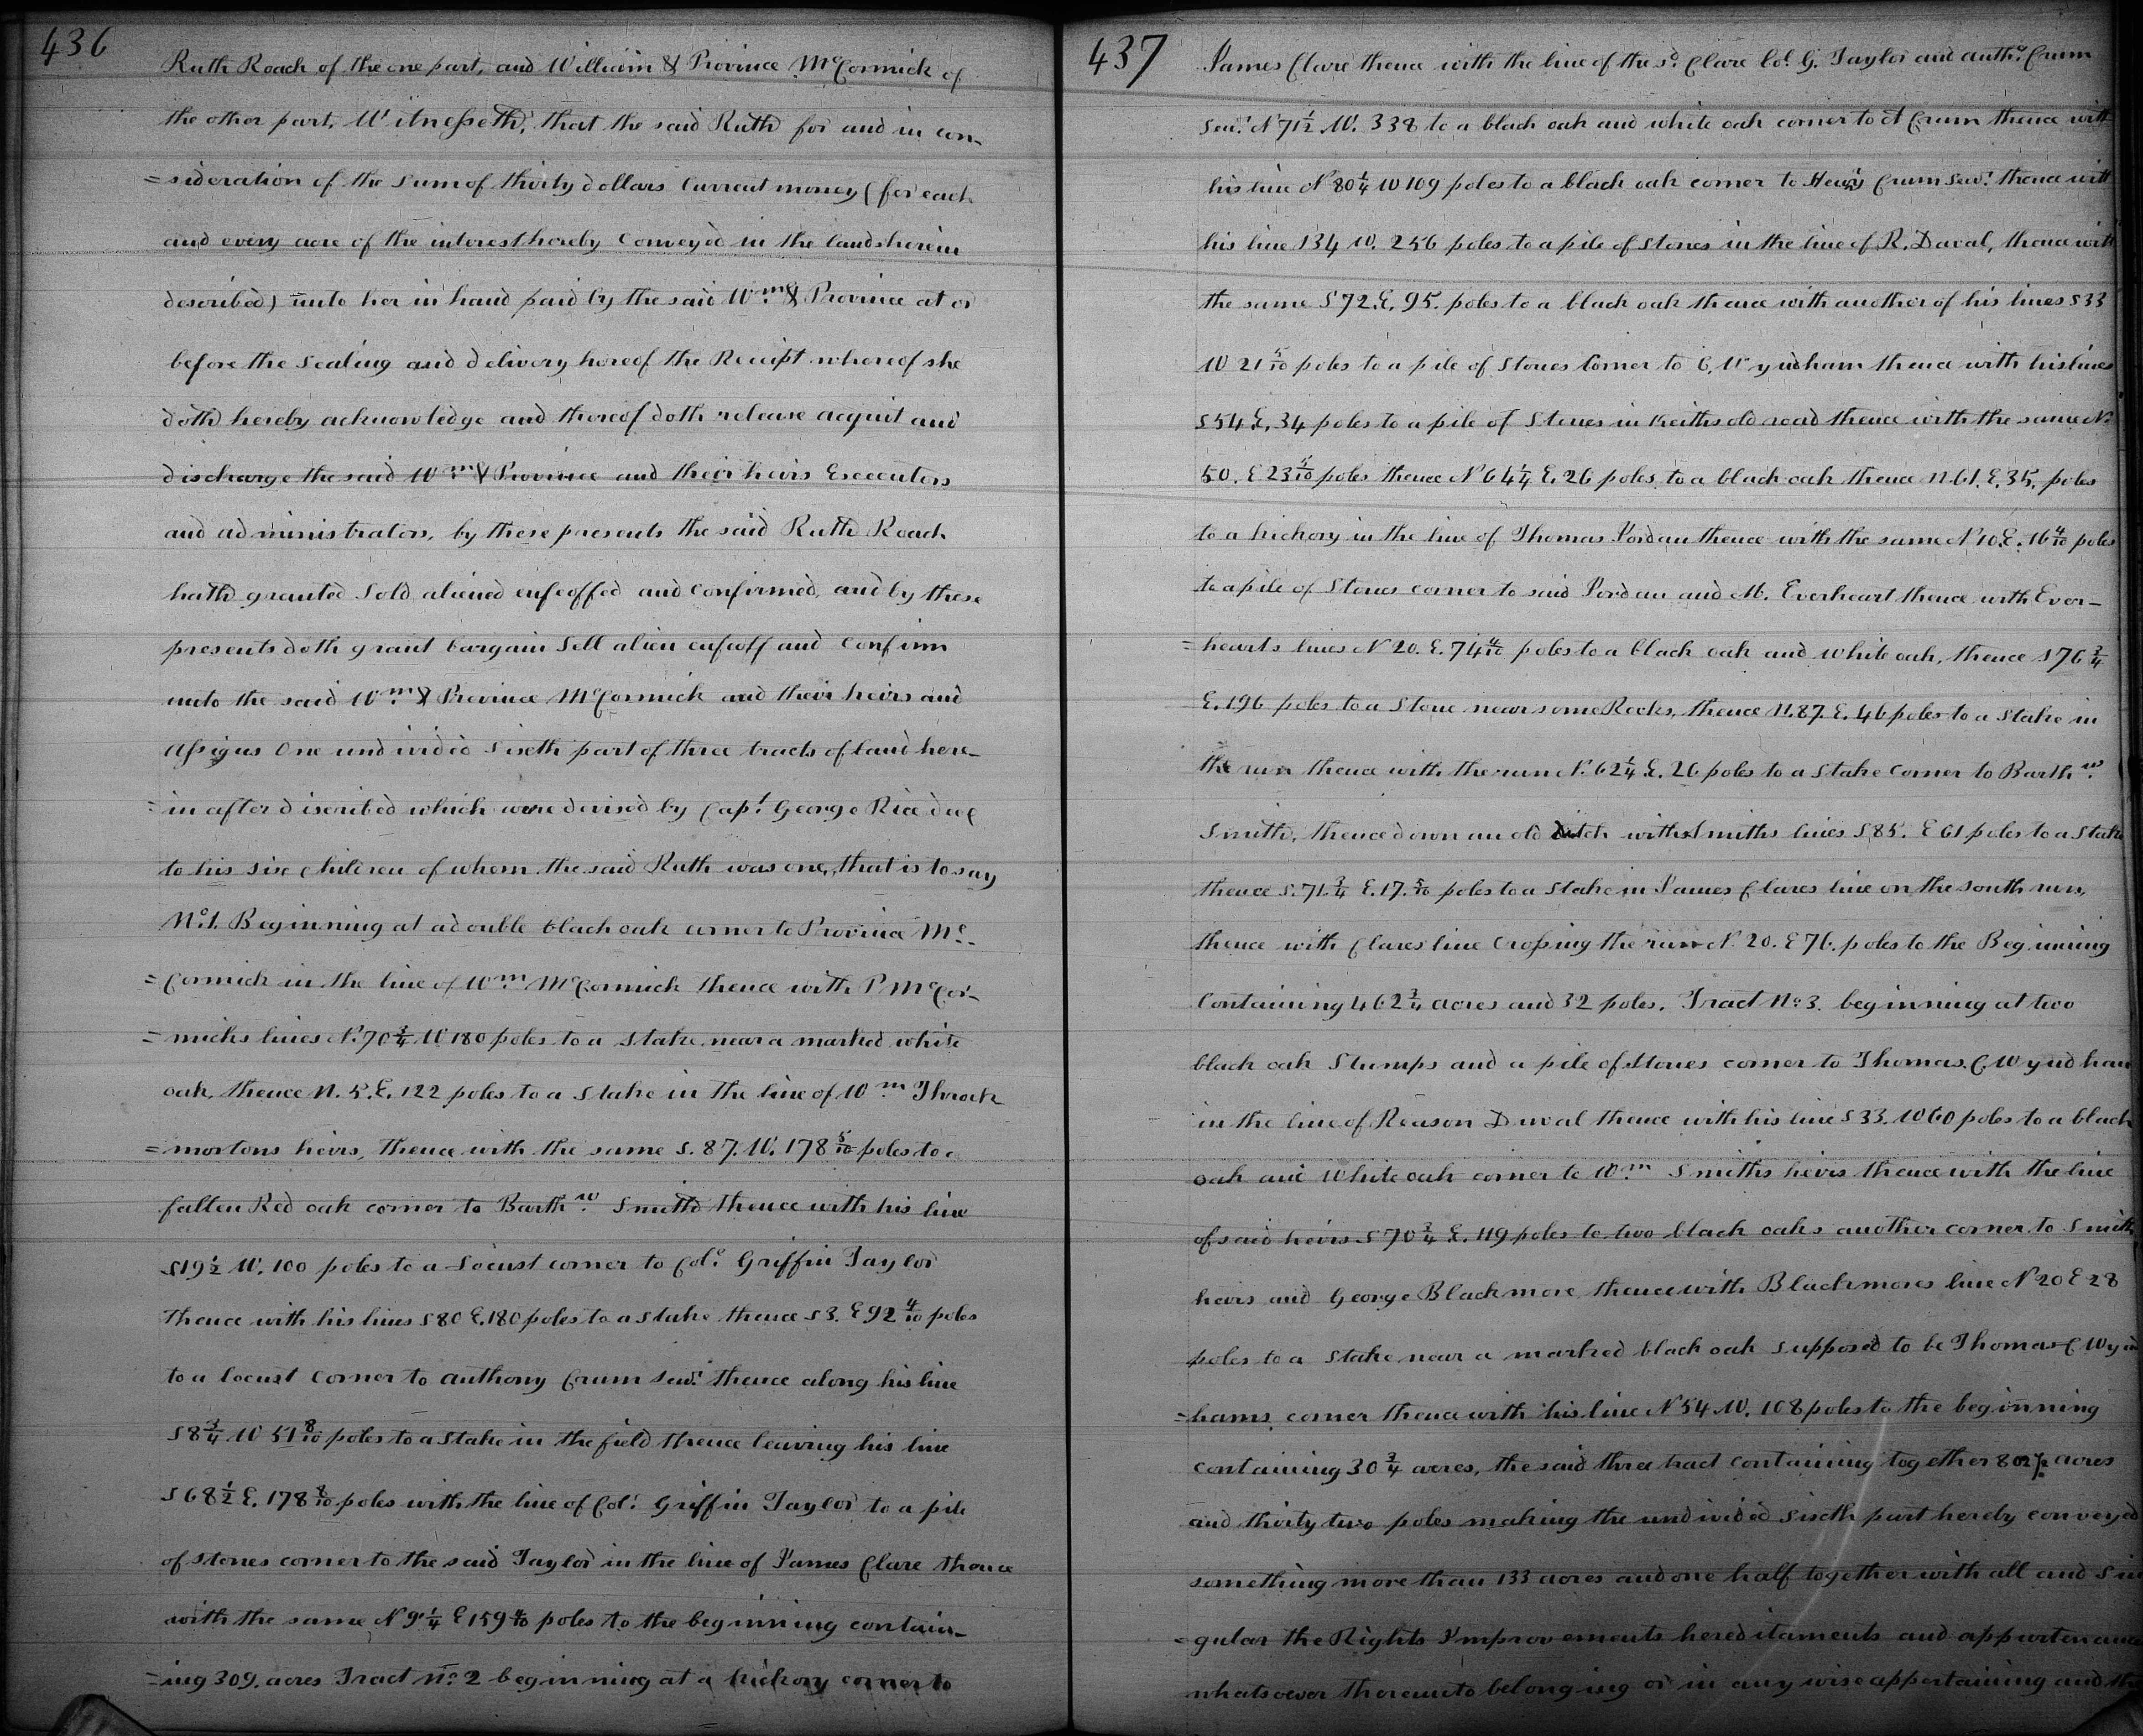 436
Ruth Roach of the one part, and William & Province McCormick of
the other part, Witnesseth, that the said Ruth for and in con-
=sideration of the sum of thirty dollars Current money (for each
and every acre of the interest hereby Conveyed in the lands herein
described) unto her in hand paid by the said Wm. & Province at or
before the sealing and delivery hereof the Receipt whereof she
doth hereby acknowledge and thereof doth release acquit and
discharge the said Wm. & Province and their heirs Executors
and administrators, by these presents the said Ruth Roach
hath granted Sold aliened enfeoffed and Confirmed, and by these
presents doth grant bargain Sell alien enfeoff and Confirm
unto the said Wm. & Province McCormick and their heirs and
Assigns One undivided Sixth part of three tracts of land here-
=in after discribed which were devised by Capt. George Rice decd
to his six children of whom the said Ruth was one, that is to say
No.1. Beginning at a double black oak corner to Province Mc-
=Cormick in the line of Wm. McCormick thence with P. McCor-
=micks lines N.70 3/4 W 180 poles to a stake near a marked white
oak, thence N. 5. E. 122 poles to a stake in the line of Wm. Throck
=mortons heirs, thence with the same S. 87. W. 178 5/10 poles to a
fallen Red oak corner to Barthw. Smith thence with his line
S19 1/2 W. 100 poles to a Locust corner to Colo. Griffin Taylor
Thence with his lines S80 E.180 poles to a stake thence S3. E 92 4/10 poles
to a locust Corner to Anthony Crum Senr. thence along his line
S8 3/4 W 51 8/10 poles to a Stake in the field thence leaving his line
S68 1/2 E. 178 8/10 poles with the line of Col. Griffin Taylor to a pile
of stones corner to the said Taylor in the line of James Clare thence
with the same N 9 1/4 E 159 4/10 poles to the beginning contain-
=ing 309. acres Tract No. 2 beginning at a hickory corner to
437
James Clare thence with the line of the sd. Clare Col. G. Taylor and Anthy. Crum
Senr. N 71 1/2 W. 338 to a black oak and white oak corner to A Crum thence with
his line N 80 1/4 W 109 poles to a black oak corner to Henry Crum Senr. thence with
his line S34 W. 256 poles to a pile of stones in the line of R. Duval, thence with
the same S72.E. 95. poles to a black oak thence with another of his lines S33
W 21 5/10 poles to a pile of Stones Corner to C. Wyndham thence with his lines
S54 E. 34 poles to a pile of Stones in Keiths old road thence with the same N.
50. E 23 5/10 poles thence N 64 1/4 E. 26 poles to a black oak thence N 61. E. 35. poles
to a hickory in the line of Thomas Jordan thence with the same N 10.E. 16 4/10 poles
to a pile of Stones corner to said Jordan and M. Everheart thence with Ever-
=hearts lines N 20. E. 74 4/10 poles to a black oak and White oak, thence S76 3/4
E.196 poles to a Stone near some Rocks, thence N.87. E. 46 poles to a Stake in
the run thence with the run N. 62 1/4 E. 26 poles to a Stake Corner to Barthw.
Smith, thence down an old ditch with Smiths lines S85. E 61 poles to a Stake
thence S.71. 3/4 E.17. 5/10 poles to a Stake in James Clares line on the South run,
thence with Clares line Crossing the run N. 20. E 76. poles to the Beginning
Containing 462 3/4 acres and 32 poles. Tract No. 3. beginning at two
black oak Stumps and a pile of Stones corner to Thomas. C. Wyndham
in the line of Reason Duval thence with his line S33. W 60 poles to a black
oak and White oak corner to Wm. Smiths heirs thence with the line
of said heirs S 70 3/4 E. 119 poles to two black oaks another corner to Smith
heirs and George Blackmore, thence with Blackmores line N 20 E 28
poles to a stake near a marked black oak supposed to be Thomas C Wynd
=hams corner thence with his line N 54 W. 108 poles to the beginning
containing 30 3/4 acres, the said three tract containing together 802 1/2 acres
and thirty two poles making the undivided sixth part hereby conveyed
something more than 133 acres and one half together with all and Sin
=gular the Rights Improvements hereditaments and appurtenance
whatsoever thereunto belonging or in any wise appertaining and the